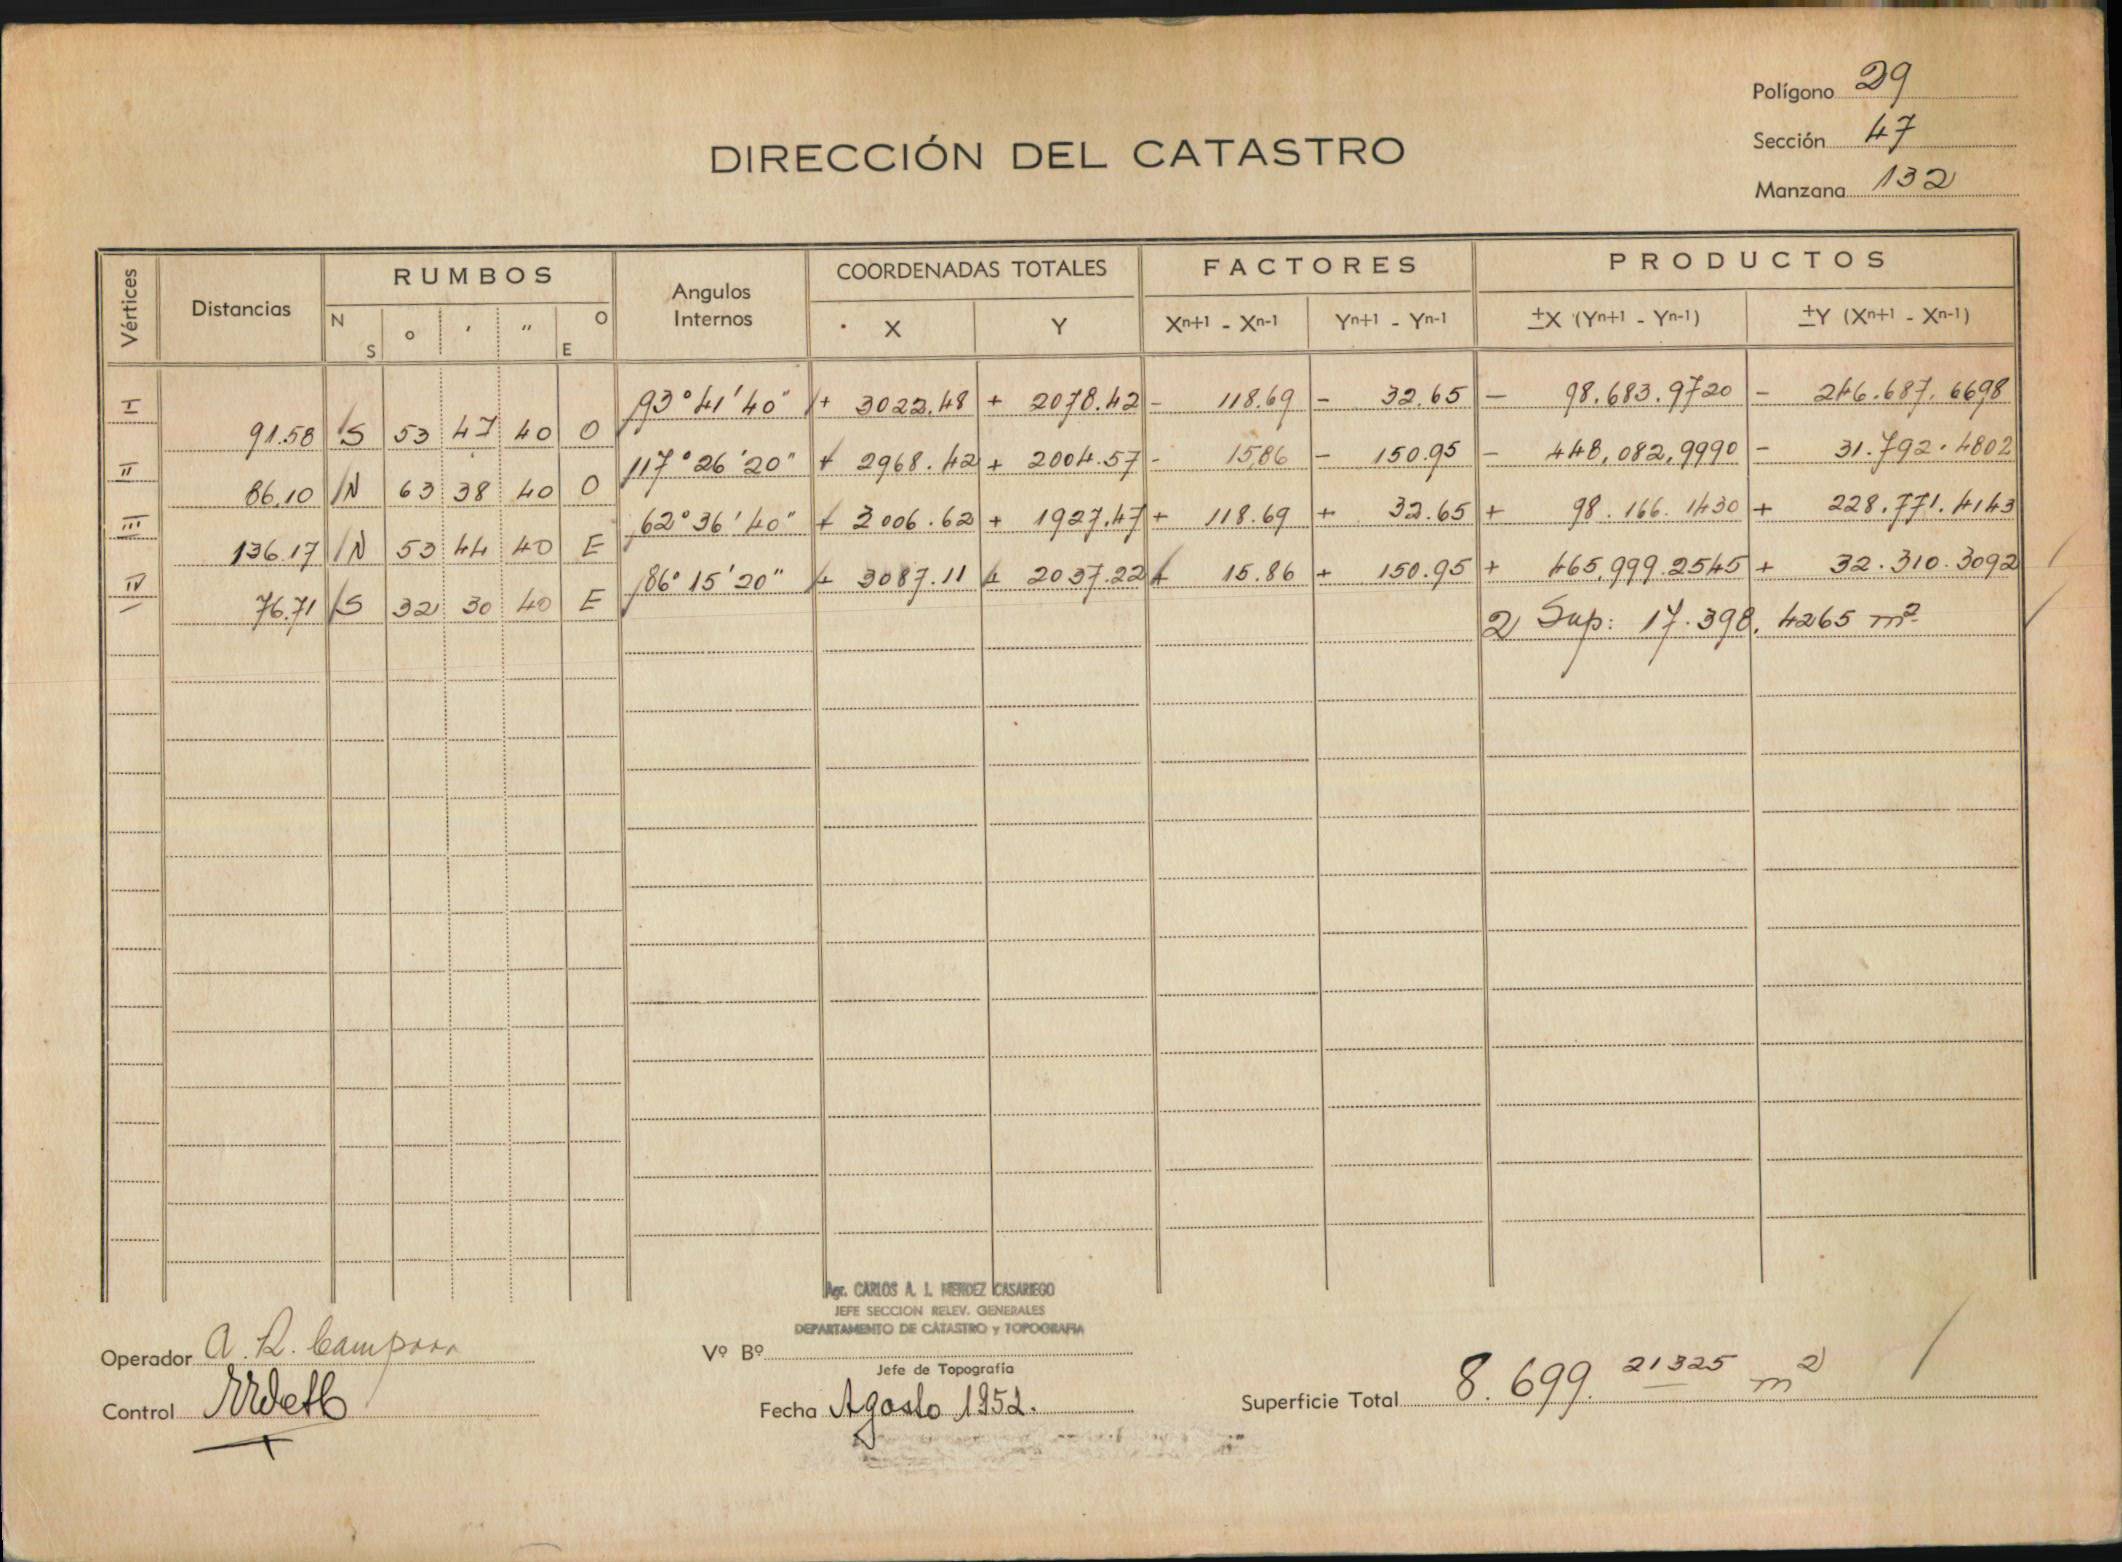 Polígono 29
Sección 47
Manzana 132
DIRECCIÓN DEL CATASTRO
Vértices Distancias RUMBOS Angulos Internos COORDENADAS TOTALES FACTORES PRODUCTOS
N S ° ' " O E X Y Xn+1 - Xn-1 Yn+1 - Yn-1 ±X (Yn+1 - Yn-1) ±Y (Xn+1 - Xn-1)
I 91.58 S 53 47 40 O 93°41'40" + 3022.48 + 2078.42 - 118.69 - 32.65 - 98.683.9720 - 246.687.6698
II 86.10 N 63 38 40 O 117°26'20" + 2968.42 + 2004.57 - 15.86 - 150.95 - 448,082,9990 - 31.792.4802
III 136.17 N 53 44 40 E 62°36'40" + 3006.62 + 1927.47 + 118.69 + 32.65 + 98.166.1430 + 228.771.4143
IV 76.71 S 32 30 40 E 86°15'20" + 3087.11 + 2037.22 + 15.86 + 150.95 + 465.999.2545 + 32.310.3092
2 Sup: 17.398.4265 m2
Agr. CARLOS A. I. MENDEZ CASARIEGO
JEFE SECCION RELEV. GENERALES
DEPARTAMENTO DE CATASTRO y TOPOGRAFIA
Operador A. R.
Vº Bº
Jefe de Topografía
Control
Fecha Agosto 1952.
Superficie Total 8.699.21325 m2